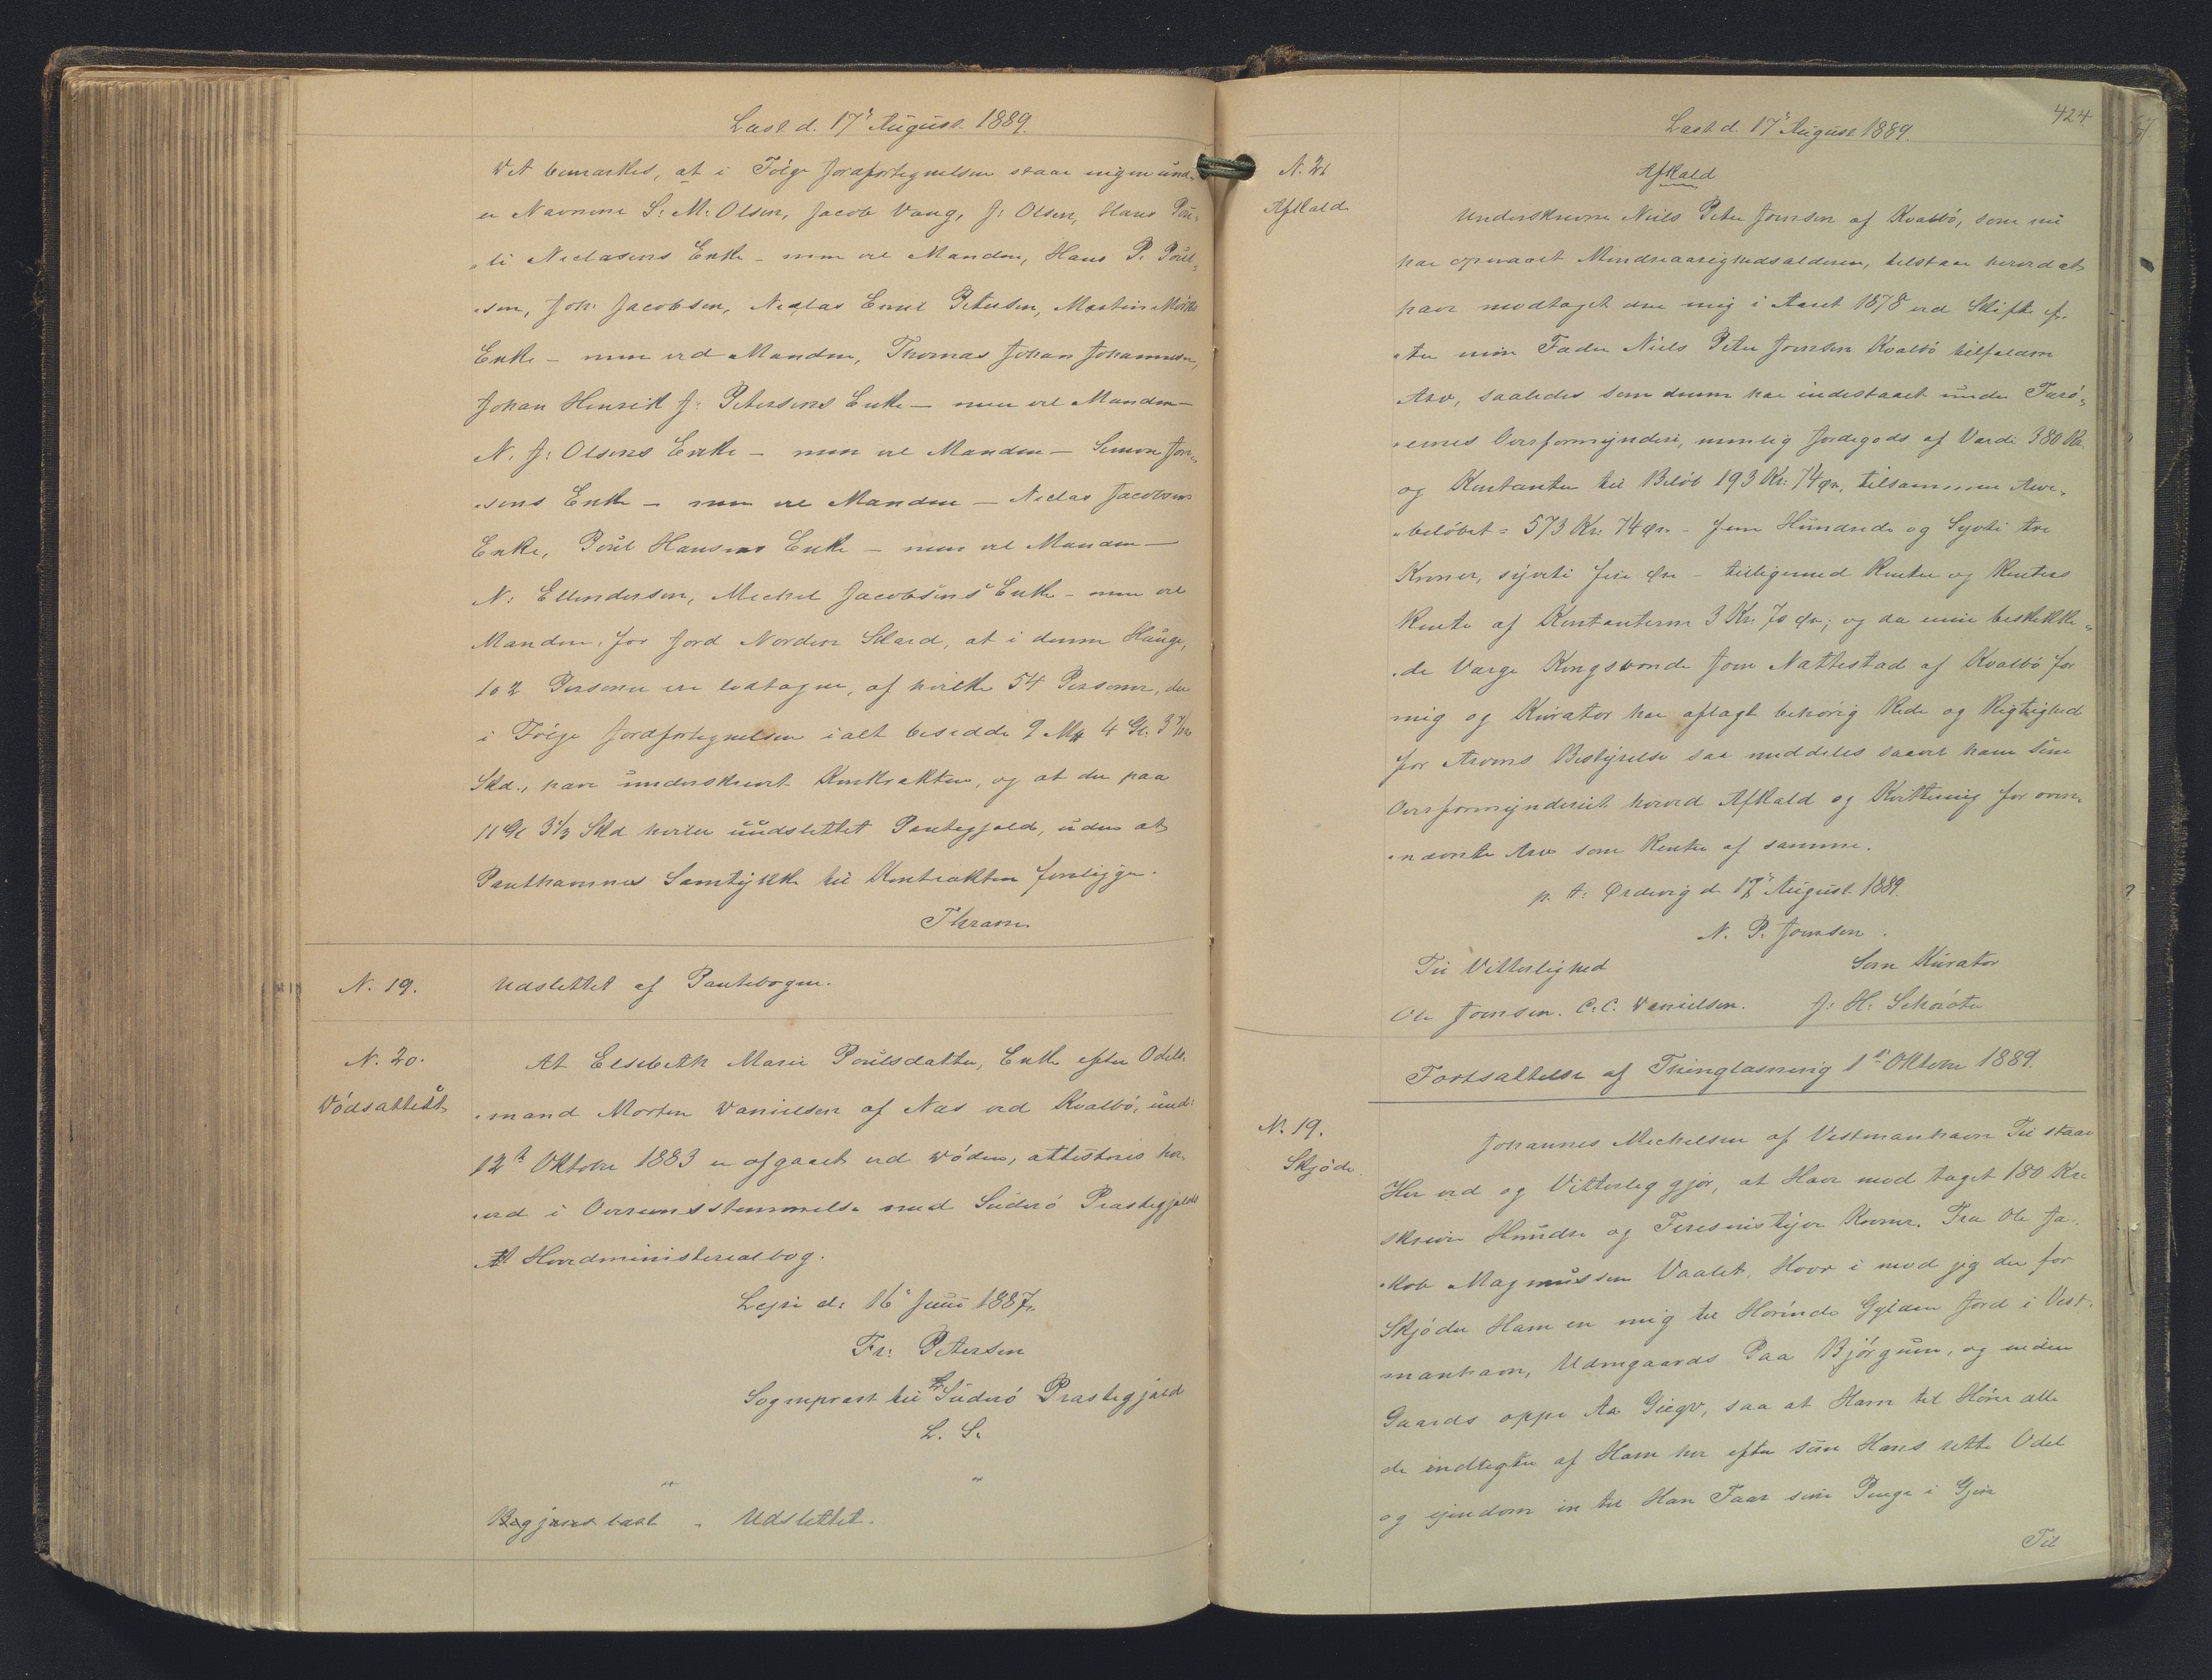 Læst d. 17' August 1889.
Det bemærkes, at i Følge Jordfortegnelsen staar ingen und-
er Navnene S. M. Olsen, Jacob Vang, J. Olsen, Hans Pou-
li Niclasens Enke - men vel Manden, Hans P. Poul-
sen, Joh. Jacobsen, Niclas Emil Petersen, Martin Mörks
Enke - men vel Manden, Thomas Johan Johannesen,
Johan Henrik J. Petersens Enke - men vel Manden -
N. J. Olsens Enke - men vel Manden - Simon Joen-
sens Enke - men vel Manden - Niclas Jacobsens
Enke, Poul Hansens Enke - men vel Manden -
N. Ellendersen, Mechel Jacobsens Enke - men vel
Manden, for Jord Norden Skard, at i denne Hauge,
102 Personer ere lodtagne, af hvilke 54 Personer, der
i Følge Jordfortegnelsen ialt besidde 9 Mk 4 Gl.
Skd., have underskrevet Kontrakten, og at der paa
11 Gl 3 1/3 Skd hviler uudslettet Pantegjæld, uden at
Panthavernes Samtykke til Kontrakten foreligger.
Thranе.
N. 19.
Udslettet af Pantebogen.
N. 20.
Dødsattest
At Elsebeth Marie Poulsdatter, Enke efter Odels-
mand Morten Danielsen af Næs ved Kvalbö, und:
12te Oktober 1883 er afgaaet ved Døden, attesteres her-
ved i Overensstemmelse med Suderö Præstegjælds
Hovedministerialbog.
Lejri d: 16' Juni 1887.
Fr: Petersen
Sognepræst til Suderö Præstegjæld
L. S.
" "
Begjæres læst - Udslettet.
424
Læst d. 17' August 1889.
N. 21
Afkald
Afkald
Underskrevne Niels Peter Joensen af Kvalbö, som nu
har opnaaet Mindreaarighedsalderen, tilstaar herved at
have modtaget den mig i Aaret 1878 ved Skifte ef-
ter min Fader Niels Peter Joensen Kvalbö tilfaldne
Arv, saaledes som denne har indestaaet under Færö-
ernes Overformynderi, nemlig Jordegods af Værdi 380 Kr.
og Kontanter til Beløb 193 Kr. 74 Ør, tilsammen Arve-
beløbet = 573 Kr. 74 Ør - fem Hundrede og Syvti tre
Kroner, syvti fire Øre - tilligemed Renter og Renters
Rente af Kontanterne 3 Kr. 70 Ør; og da min beskikke-
de Værge Kongsbonde Joen Nattestad af Kvalbö for
mig og Kurator har aflagt behørig Rede og Rigtighed
for Arvens Bestyrelse saa meddeles saavel ham som
Overformynderiet herved Afkald og Kvittering for oven-
nævnte Arv som Renter af samme.
p. t: Ördevig d. 17' August 1889.
N. P. Joensen.
Til Vitterlighed
Som Kurator
Ole Joensen. C. C. Danielsen. J. H. Schröter
Fortsættelse af Thinglæsning 1ste Oktober 1889.
N. 19.
Skjøde.
Johannes Mechelsen af Vestmanhavn Til staar
Her ved og Vitterleg gjør, at Have mod taget 180 Kr
skrive Hundre og Feresinstyve Kroner. Fra Ole Ja-
kob Magnussen Vaalet. Hvor i mod jeg der for
Skjøder Ham en mig til Hørende Gylden Jord i Vest-
manhavn, Udengaards Paa Bjørgum, og inden
Gaards oppe Aa Giegv, saa at Ham til Hører alle
de indtegter af Ham her efter som Hans rette Odel
og ejendom in til Han Faar sine Penge i Gjen
Til